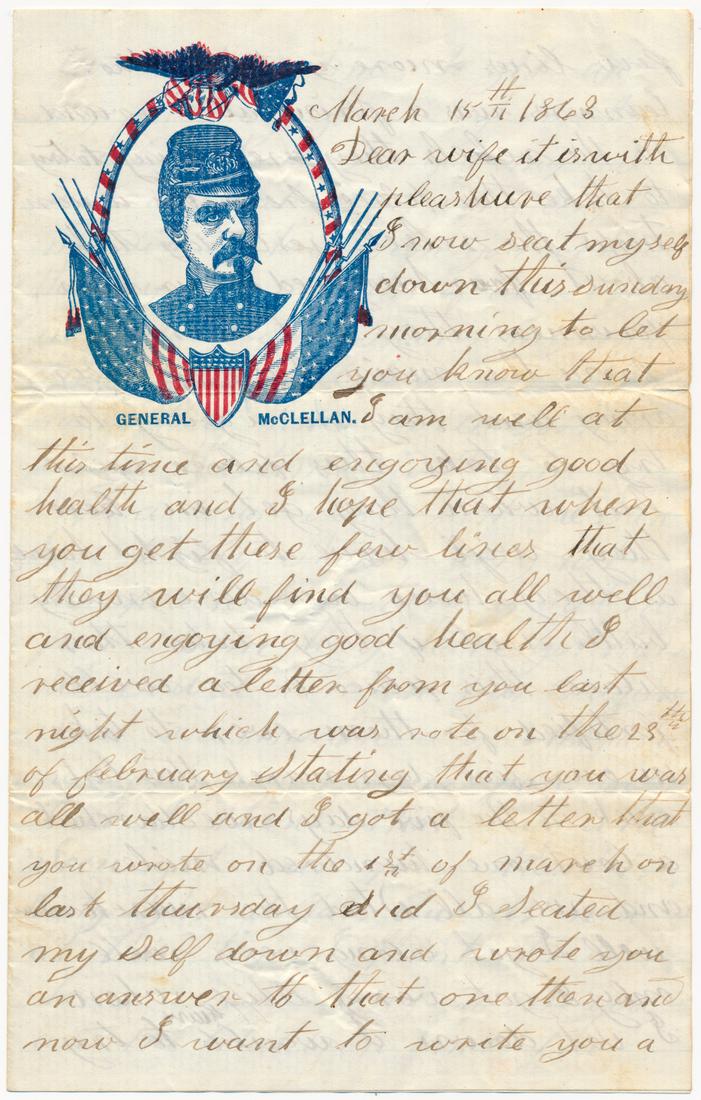 March 15th 1863
Dear wife it is with
pleashure that
I now seat myself
down this sunday
morning to let
you know that
GENERAL McCLELLAN.
I am well at
this time and engoying good
health and I hope that when
you get these few lines that
they will find you all well
and engoying good health I
received a letter from you last
night which was rote on the 23th
of february Stating that you was
all well and I got a letter that
you wrote on the 1st of march on
last thursday and I Seated
my Self down and wrote you
an answer to that one then and
now I want to write you a